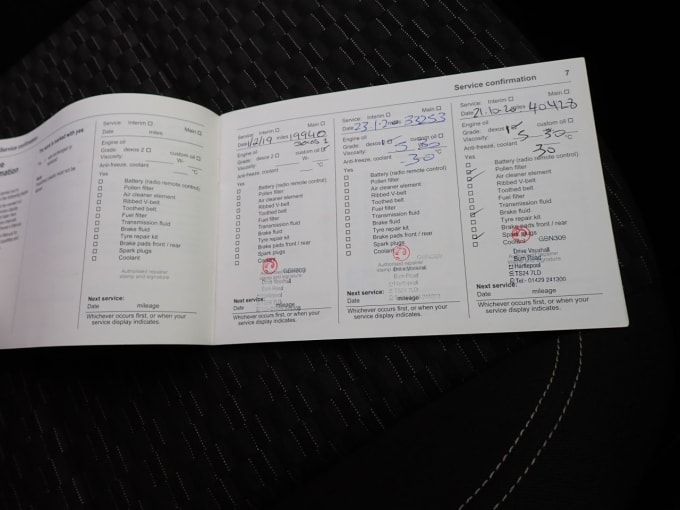 Service confirmation 7
Service: Interim Main
Date miles
Engine oil
Grade: dexos 2 custom oil
Viscosity: W-
Anti-freeze, coolant °C
Yes
Battery (radio remote control)
Pollen filter
Air cleaner element
Ribbed V-belt
Toothed belt
Fuel filter
Transmission fluid
Brake fluid
Tyre repair kit
Brake pads front / rear
Spark plugs
Coolant
Authorised repairer
stamp and signature
Next service:
Date mileage
Whichever occurs first, or when your
service display indicates.
Service: Interim Main
Date 1/2/19 miles 19940
Engine oil
Grade: dexos 2 custom oil
Viscosity:
Anti-freeze, coolant °C
Yes
Battery (radio remote control)
Pollen filter
Air cleaner element
Ribbed V-belt
Toothed belt
Fuel filter
Transmission fluid
Brake fluid
Tyre repair kit
Brake pads front / rear
Spark plugs
Coolant
Authorised repairer
stamp and signature
Next service:
Date mileage
Whichever occurs first, or when your
service display indicates.
Service: Interim Main
Date 23.1.2 33253
Engine oil
Grade: dexos custom oil
Viscosity: 5 30
Anti-freeze, coolant 30 °C
Yes
Battery (radio remote control)
Pollen filter
Air cleaner element
Ribbed V-belt
Toothed belt
Fuel filter
Transmission fluid
Brake fluid
Tyre repair kit
Brake pads front / rear
Spark plugs
Coolant
Authorised repairer
Drive Vauxhall
Burn Road
Hartlepool
TS24 7LD
Next service:
Date mileage
Whichever occurs first, or when your
service display indicates.
Service: Interim Main
Date 21.10.20 miles 40428
Engine oil
Grade: dexos custom oil
Viscosity: 5 30
Anti-freeze, coolant 30 °C
Yes
Battery (radio remote control)
Pollen filter
Air cleaner element
Ribbed V-belt
Toothed belt
Fuel filter
Transmission fluid
Brake fluid
Tyre repair kit
Brake pads front / rear
Spark plugs
Coolant GBN309
Drive Vauxhall
Burn Road
Hartlepool
TS24 7LD
Tel - 01429 241300
Next service:
Date mileage
Whichever occurs first, or when your
service display indicates.